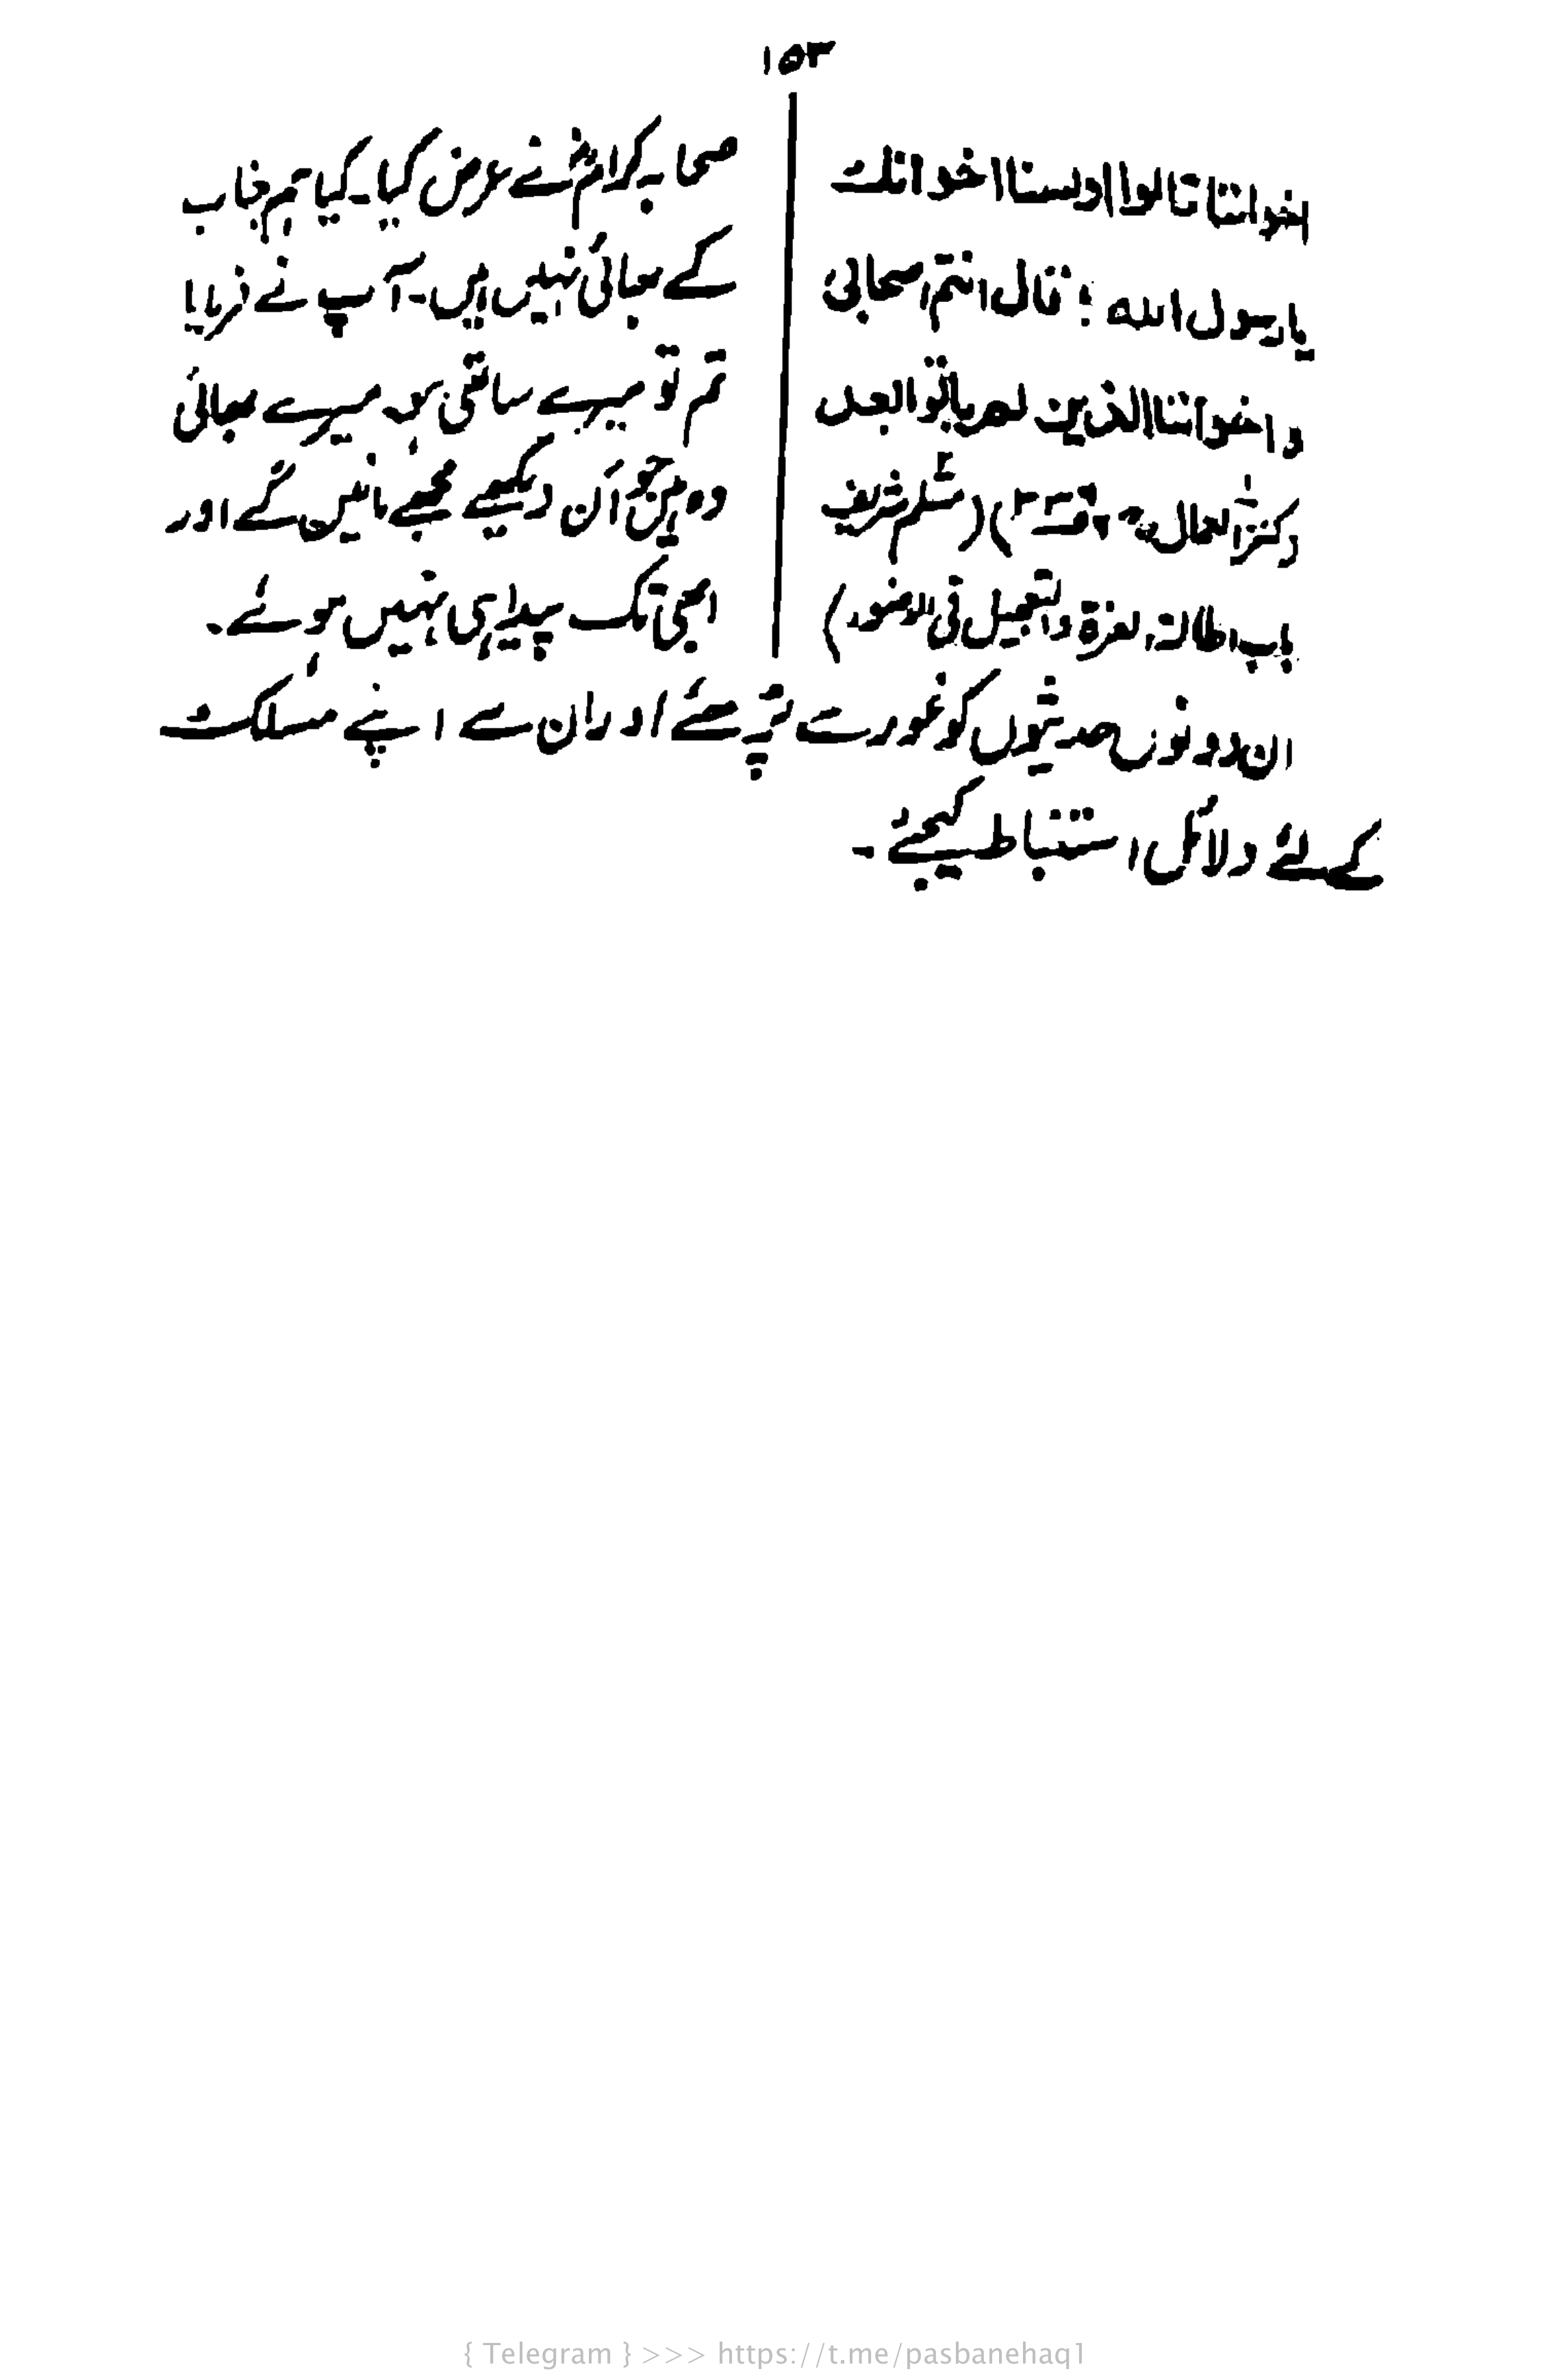 ۱۵۳
اخواننا قالوا اولسنا اخوانك
يا رسول الله ؛ قال انتم اصحابی
و اخواننا الذین لم یاتوا بعد
(کنز العمال (مسلم شریف
باب اطالۃ الغرۃ والتحجیل فی الوضوء)
صحابہ کرامؓ نے عرض کیا۔ کیا ہم جناب
کے بھائی نہیں ہیں۔ آپ نے فرمایا
تم تو میرے ساتھی ہو۔ میرے بھائی
وہ ہیں جو اَن دیکھے مجھے مانیں گے اور
ابھی تک پیدا ہی نہیں ہوئے۔
ان دونوں حدیثوں کو غور سے پڑھئے اور ان سے اپنے مسلک
کے لئے دلائل استنباط کیجئے۔
{ Telegram } >>> https://t.me/pasbanehaq1